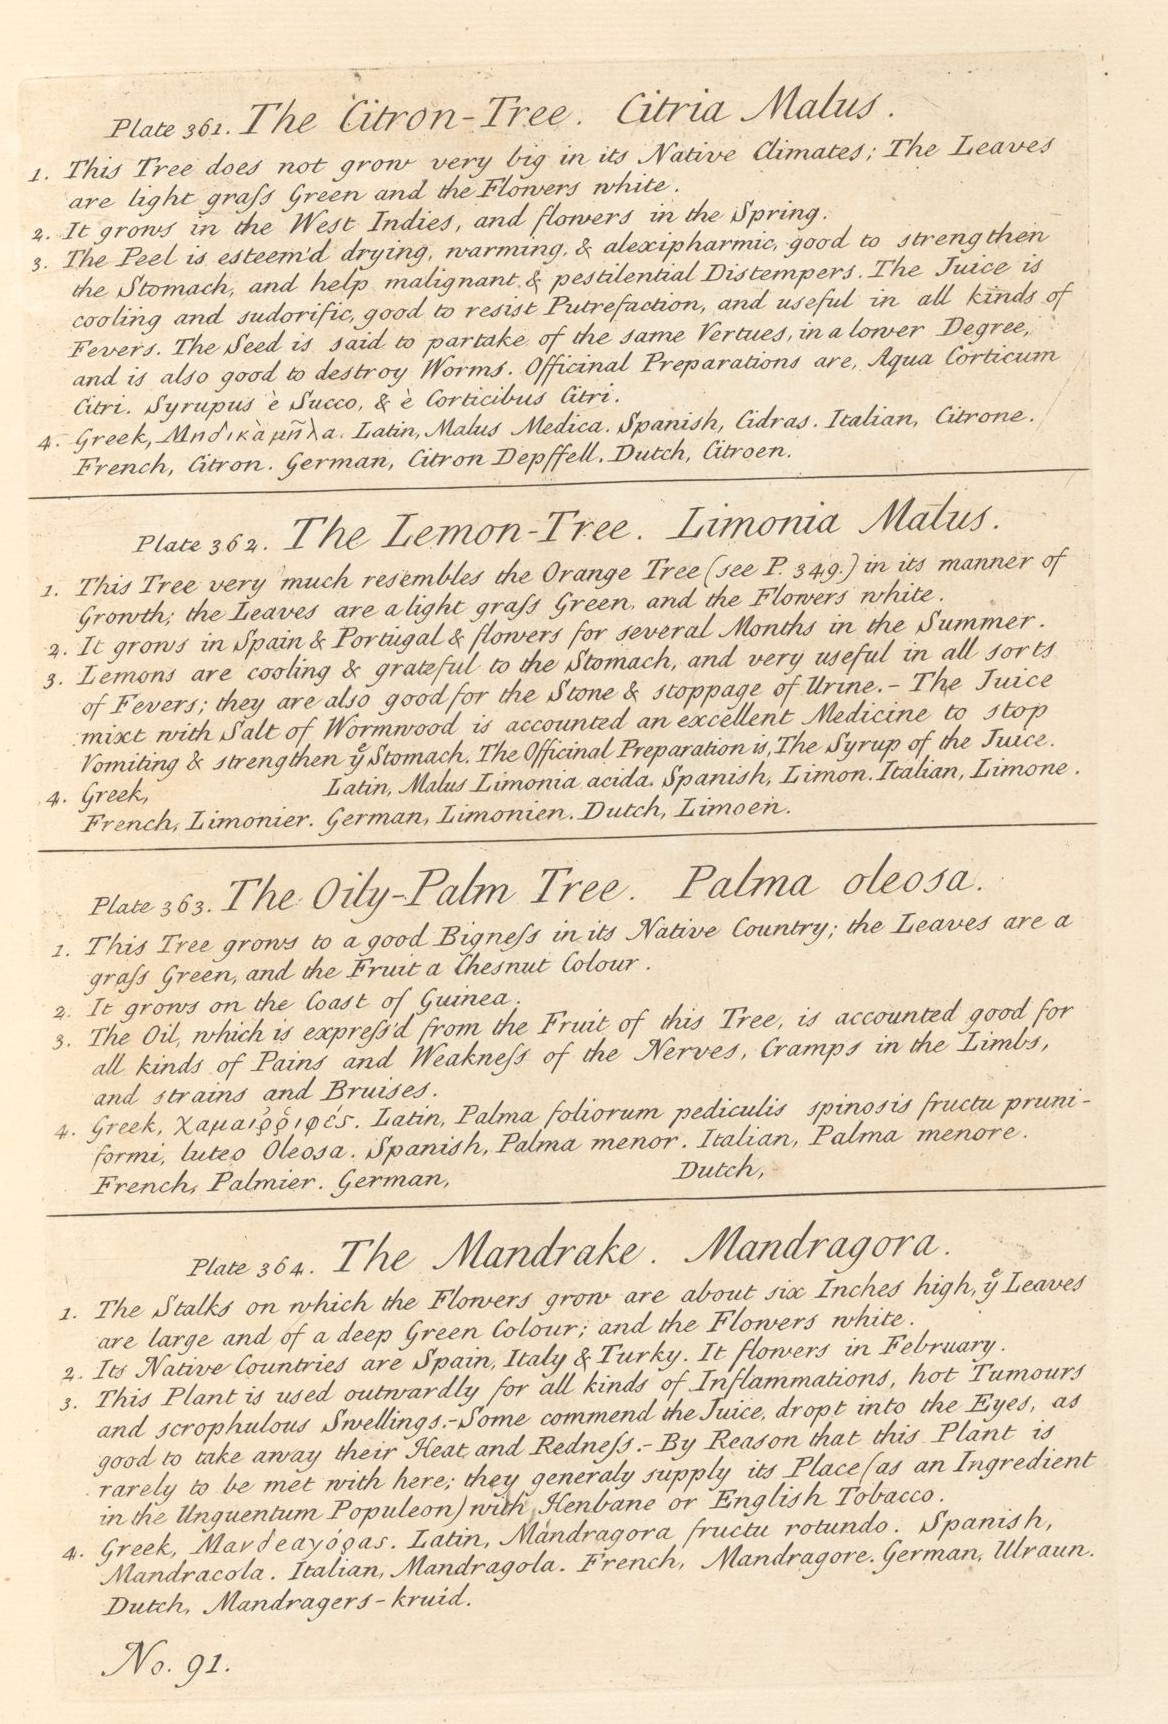 Plate 361. The Citron-Tree. Citria Malus.
1. This Tree does not grow very big in its Native Climates; The Leaves
are light graſs Green and the Flowers white.
2. It grows in the West Indies, and flowers in the Spring.
3. The Peel is esteem'd drying, warming, & alexipharmic, good to strengthen
the Stomach, and help malignant & pestilential Distempers. The Juice is
cooling and sudorific, good to resist Putrefaction, and useful in all kinds of
Fevers. The Seed is said to partake of the same Vertues, in a lower Degree,
and is also good to destroy Worms. Officinal Preparations are, Aqua Corticum
Citri. Syrupus è Succo, & è Corticibus Citri.
4. Greek, Μηδικὰ μῆλα. Latin, Malus Medica. Spanish, Cidras. Italian, Citrone.
French, Citron. German, Citron Depffell. Dutch, Citroen.
Plate 362. The Lemon-Tree. Limonia Malus.
1. This Tree very much resembles the Orange Tree (see P. 349.) in its manner of
Growth; the Leaves are a light graſs Green, and the Flowers white.
2. It grows in Spain & Portugal & flowers for several Months in the Summer.
3. Lemons are cooling & grateful to the Stomach, and very useful in all sorts
of Fevers; they are also good for the Stone & stoppage of Urine.- The Juice
mixt with Salt of Wormwood is accounted an excellent Medicine to stop
Vomiting & strengthen yͤ Stomach. The Officinal Preparation is, The Syrup of the Juice.
4. Greek, Latin, Malus Limonia acida. Spanish, Limon. Italian, Limone.
French, Limonier. German, Limonien. Dutch, Limoen.
Plate 363. The Oily-Palm Tree. Palma oleosa.
1. This Tree grows to a good Bigneſs in its Native Country; the Leaves are a
graſs Green, and the Fruit a Chesnut Colour.
2. It grows on the Coast of Guinea.
3. The Oil, which is expreſs'd from the Fruit of this Tree, is accounted good for
all kinds of Pains and Weakneſs of the Nerves, Cramps in the Limbs,
and strains and Bruises.
4. Greek, χαμαιῤῥιφές. Latin, Palma foliorum pediculis spinosis fructu pruni-
formi, luteo Oleosa. Spanish, Palma menor. Italian, Palma menore.
French, Palmier. German, Dutch,
Plate 364. The Mandrake. Mandragora.
1. The Stalks on which the Flowers grow are about six Inches high, yͤ Leaves
are large and of a deep Green Colour; and the Flowers white.
2. Its Native Countries are Spain, Italy & Turky. It flowers in February.
3. This Plant is used outwardly for all kinds of Inflammations, hot Tumours
and scrophulous Swellings.-Some commend the Juice, dropt into the Eyes, as
good to take away their Heat and Redneſs.- By Reason that this Plant is
rarely to be met with here; they generaly supply its Place (as an Ingredient
in the Unguentum Populeon) with Henbane or English Tobacco.
4. Greek, Μανδεαγόρας. Latin, Mandragora fructu rotundo. Spanish,
Mandracola. Italian, Mandragola. French, Mandragore. German, Ulraun.
Dutch, Mandragers-kruid.
No. 91.